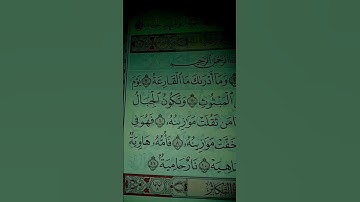 الرحمن الرحيم
وَمَا أَدْرَىٰكَ مَا ٱلْقَارِعَةُ ۝ يَوْمَ
ٱلْمَبْثُوثِ ۝ وَتَكُونُ ٱلْجِبَالُ
مَن ثَقُلَتْ مَوَٰزِينُهُۥ ۝ فَهُوَ فِى
خَفَّتْ مَوَٰزِينُهُۥ ۝ فَأُمُّهُۥ هَاوِيَةٌ
مَاهِيَهْ ۝ نَارٌ حَامِيَةٌۢ ۝
التكاثر